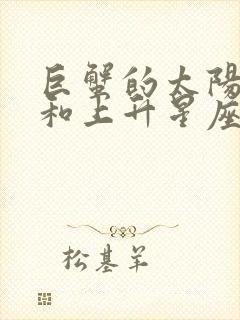 巨蟹的太陽
和上升星座
松基羊